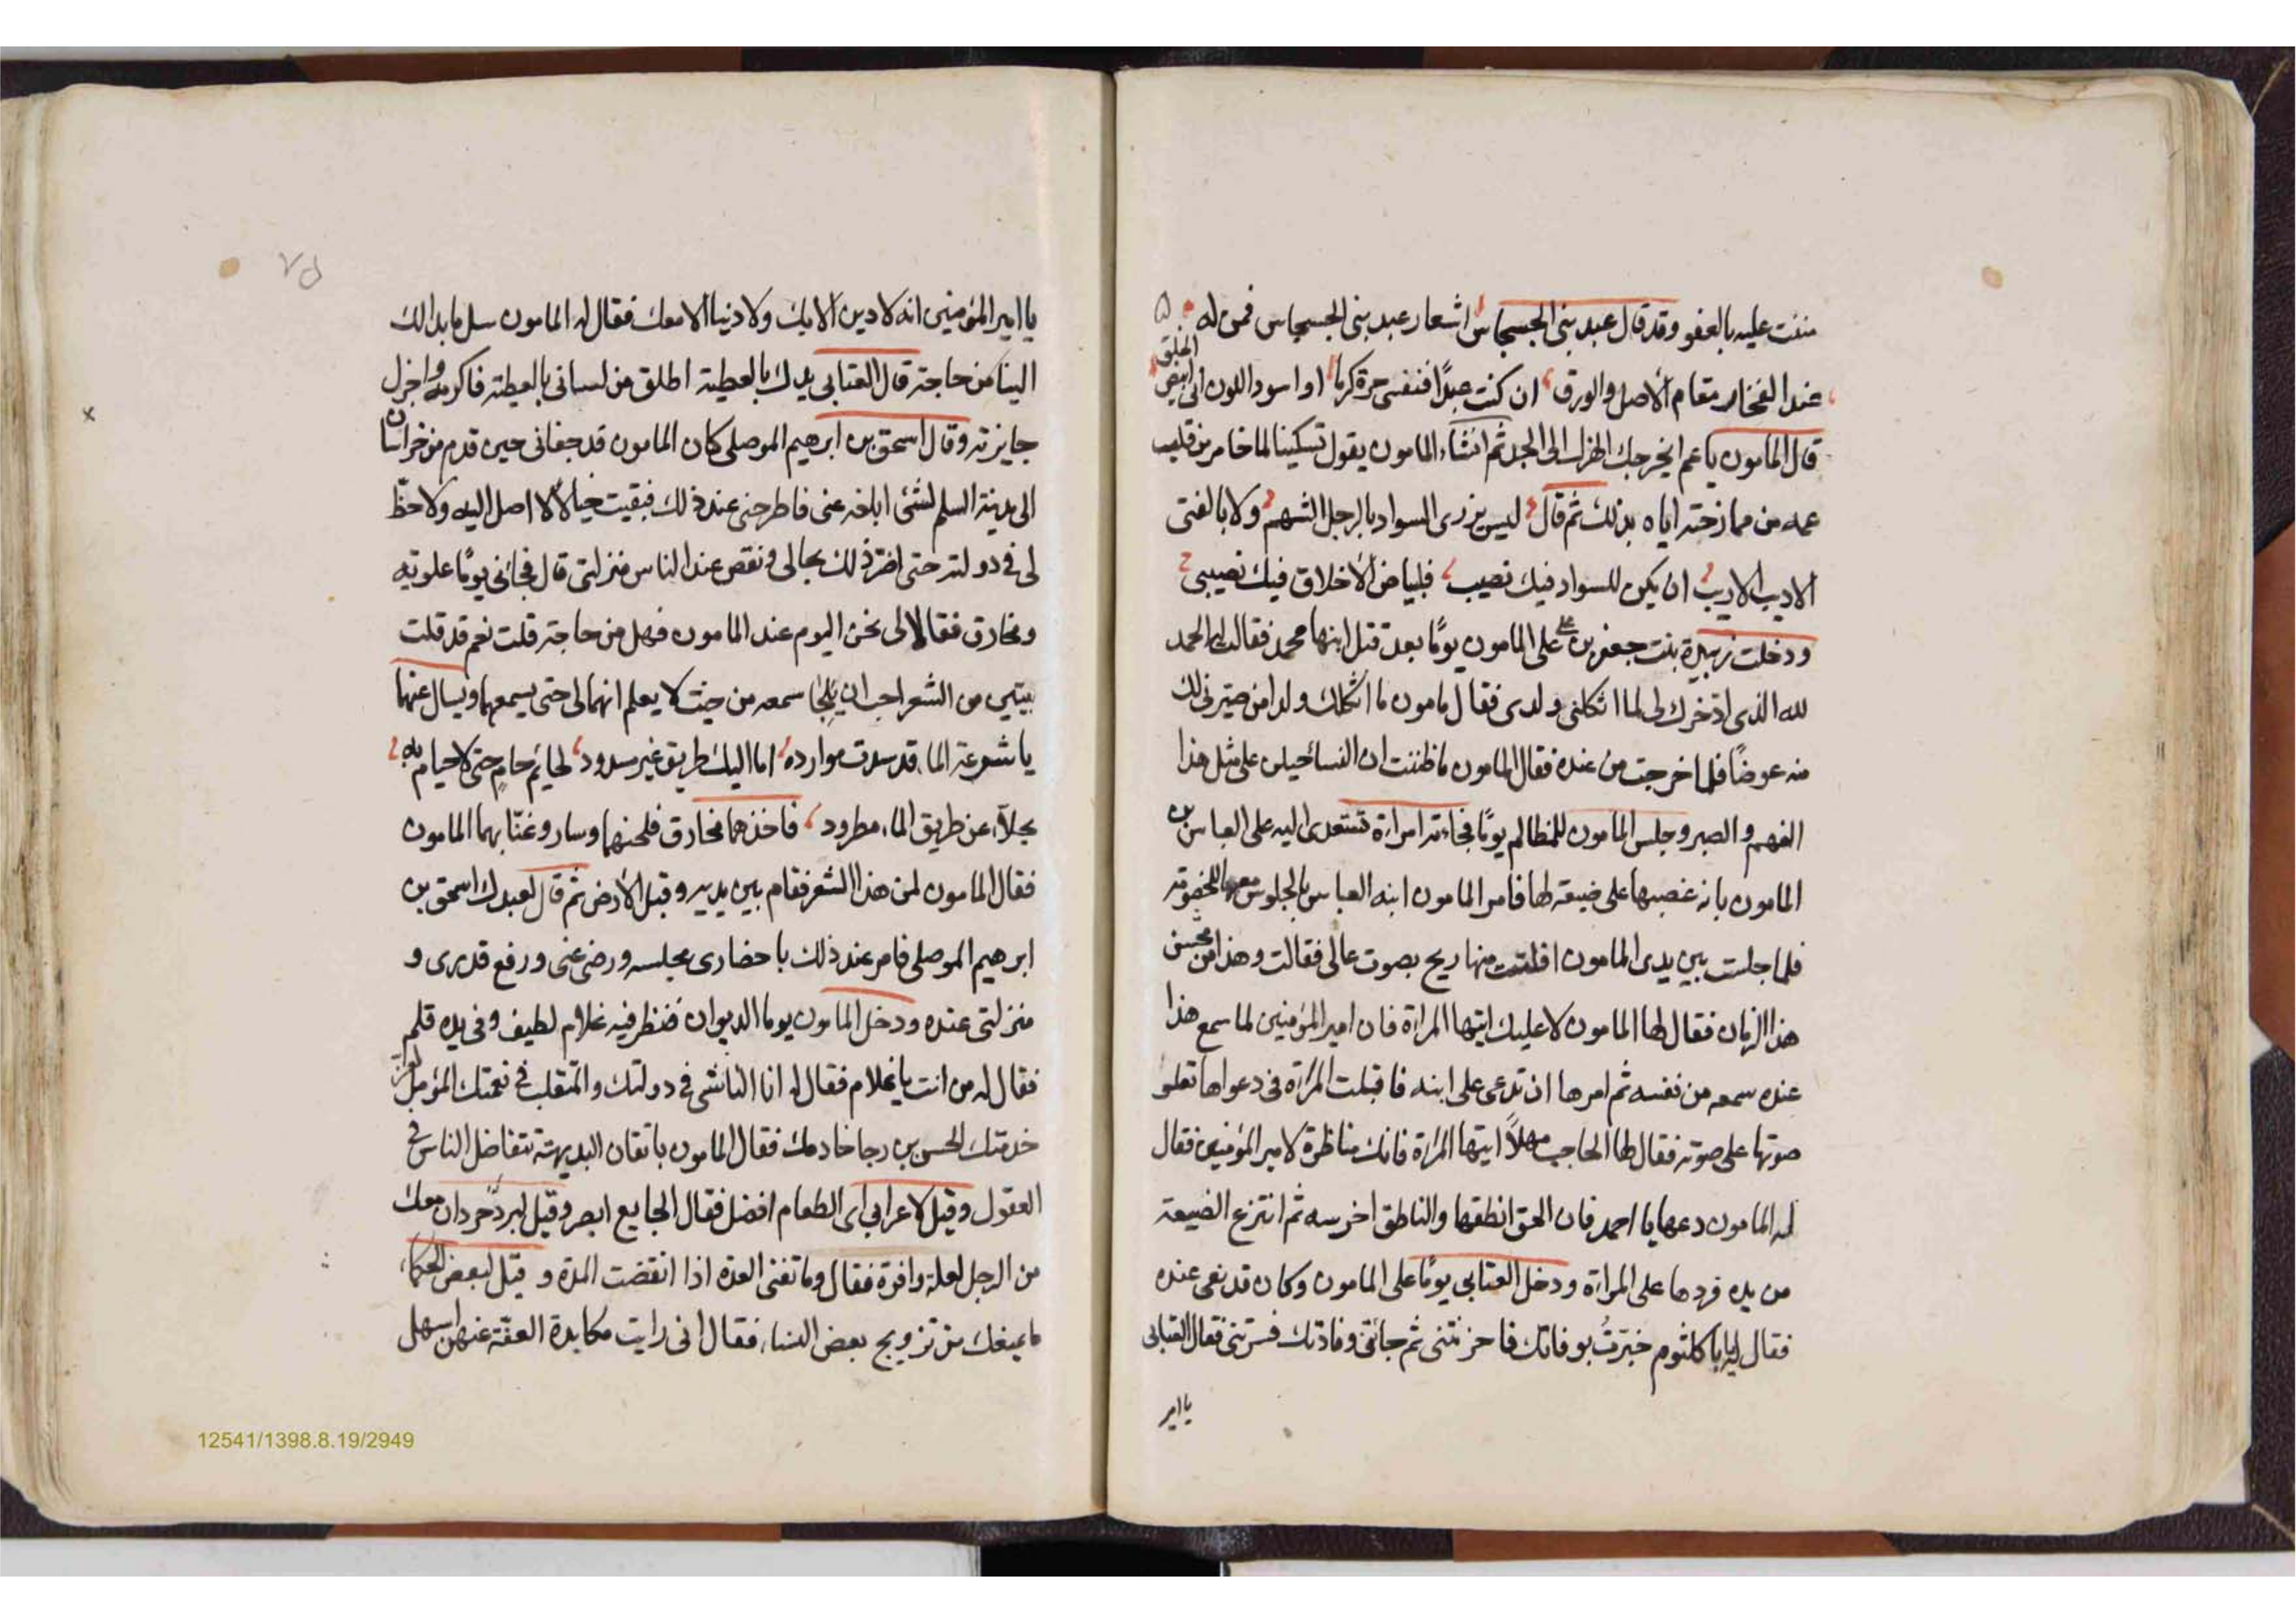 مننت عليه بالعفو وقد قال عبد بنى الحسحاس اشعار عبد بنى الحسحاس قمن له
عند الفخار مقام الاصل والورق ان كنت عبدًا فنفسى حرة كرما او اسود اللون انى ابيض الخلق
قال المامون ياعم اخرجك الهزل الى الجد ثم انشاء المامون يقول تسكينا لما خامر من قلب
عمه من ممازحته اياه بذلك ثم قال ليس يزرى السواد بالرجل الشهم ولا بالفتى
الاديب الاريب ان يكن للسواد فيك نصيب فبياض الاخلاق فيك نصيبى
ودخلت زبيدة بنت جعفر بن على المامون يومًا بعد قتل ابنها محمد فقالت له الحمد
لله الذى ادخرك لى لما اثكلنى ولدى فقال مامون ما اثكلك ولدا من صير ذلك
منه عوضًا فلما خرجت من عنده فقال المامون ما ظننت ان النسا جبلن على مثل هذا
الفهم والصبر وجلس المامون للمظالم يومًا فجاءته امراة تستعدى اليه على العباس بن
المامون بانه غصبها على ضيعة لها فامر المامون ابنه العباس بالجلوس معها للخصومة
فلما جلست بين يدى المامون افلتت منها ريح بصوت عالى فقالت وهذا من محسن
هذا الزمان فقال لها المامون لا عليك ايتها المراة فان امير المؤمنين لما سمع هذا
عنده سمعه من نفسه ثم امرها ان تدعى على ابنه فاقبلت المراة فى دعواها تعلو
صوتها على صوته فقال لها الحاجب مهلاً ايتها المراة فانك مناظرة لامير المؤمنين فقال
له المامون دعها يا احمد فان الحق انطقها والناطق اخرسه ثم انتزع الضيعة
من يده فردها على المراة ودخل العتابى يومًا على المامون وكان قد نعى عنده
فقال له يابا كلثوم خبّرتُ بوفاتك فاحزنتنى ثم جائتنى وفادتك فسرّتنى فقال العتابى
يا امير
يا امير المؤمنين انه لا دين الا بك ولا دنيا الا معك فقال له المامون سل ما بدا لك
الينا من حاجة قال العتابى يدك بالعطية اطلق من لسانى بالعطية فاكرمه واجزل
جايزته وقال اسحق بن ابرهيم الموصلى كان المامون قد جفانى حين قدم من خراسان
الى مدينة السلم لشئ ابلغه عنى فاطرحنى عند ذلك فبقيت خيالاً لا اصل اليه ولا حظّ
لى فى دولته حتى اضر ذلك بحالى ونقص عند الناس منزلتى قال فجائنى يومًا علويه
ومخارق فقالا لى نحن اليوم عند المامون فهل من حاجة قلت نعم قد قلت
بيتين من الشعر احب ان يلجا سمعه من حيث لا يعلم انهما لى حتى يسمعهما ويسال عنهما
يا شرعة الماء قد سدت موارده اما اليك طريق غير مسدود لحائم حام حتى لا حيام به
محلّاء عن طريق الماء مطرود فاخذهما مخارق فلحنهما وسار وغنّا بهما المامون
فقال المامون لمن هذا الشعر فقام بين يديه وقبل الارض ثم قال لعبدك اسحق بن
ابرهيم الموصلى فامر عند ذلك باحضارى مجلسه ورضى عنى ورفع قدرى و
منزلتى عنده ودخل المامون يوما الديوان فنظر فيه غلام لطيف وفى يده قلم
فقال له من انت يا غلام فقال له انا الناشى فى دولتك والمتقلب فى نعمتك المؤمل
خدمتك الحسن بن رجا خادمك فقال المامون باتقان البديهة تتفاضل الناس فى
العقول وقيل لاعرابى اى الطعام افضل فقال الجايع ابصر وقيل ان معك
من الرجل لعلة وافرة فقال وما تغنى العدة اذا انقضت المدة و قيل لبعض الحكماء
ما يمنعك من تزويج بعض النساء فقال انى رايت مكابدة العفّة عنهن اسهل
12541/1398.8.19/2949